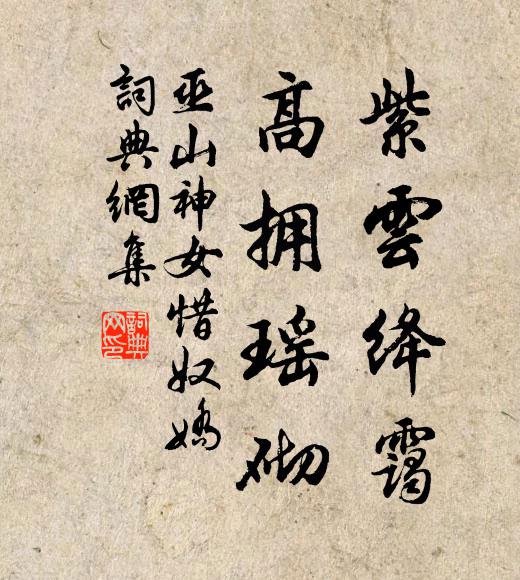 紫雲绛靄
高拥瑶砌
巫山神女惜奴嬌
詞典網集
詞典
网印